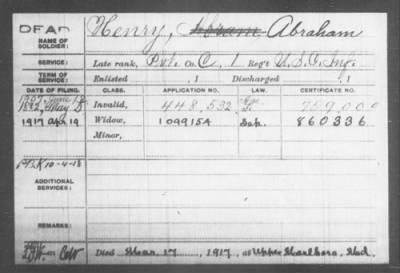 DEAD
NAME OF SOLDIER: Henry, Abram Abraham
SERVICE: Late rank, Pvt. Co. C, 1 Reg't U.S.C. Inf.
TERM OF SERVICE: Enlisted , 1 Discharged , 1
DATE OF FILING. CLASS. APPLICATION NO. LAW. CERTIFICATE NO.
1892, May Invalid, 448,532 759,000
1917 Apr 19 Widow, 1099154 860336
Minor,
10-4-18
ADDITIONAL SERVICES:
REMARKS:
Died Mar. 17, 1917, at Upper Marlboro, Md.